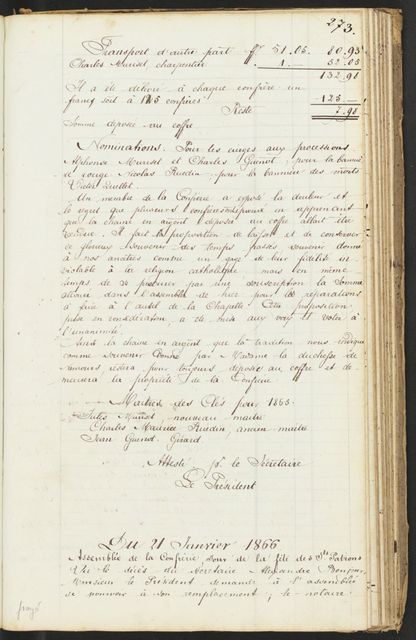 273.
Transport d'autre part fr 51.05. 80.93
Charles Muriset, charpentier 1.— 52.05
132.98
Il a été délivré à chaque confrère un
franc soit à 125 confrères 125.—
Reste 7.98
Somme déposée au coffre
Nominations. Pour les cierges aux processions
Alphonse Muriset et Charles Guenot; pour la bannière
rouge Nicolas Ruedin, pour la bannière des morts
Victor Quellet.
Un membre de la Confrérie a exposé la douleur et
le regret que plusieurs confrères éprouvent en apprenant
que la chaine en argent déposée au coffre allait être
vendue. Il fait la proposition de laisser et de conserver
ce glorieux souvenir des temps passés souvenir donné
à nos ancêtres comme un gage de leur fidélité in
violable à la religion catholique, mais en même
temps de se procurer par une souscription la somme
allouée dans l'assemblée de hier pour les réparations
à faire à l'autel de la Chapelle. Cette proposition
prise en considération, a été mise aux voix et votée à
l'unanimité.
Ainsi la chaine en argent que la tradition nous indique
comme souvenir donné par Madame la duchesse de
Nemours restera pour toujours déposée au coffre et de-
meurera la propriété de la Confrérie
Maitres des Clés pour 1865
Jules Muriset, nouveau maitre
Charles Maurice Ruedin, ancien maitre
Jean Guenot Girard.
Attesté pr. le Secrétaire
Le Président
Du 21 Janvier 1866
Assemblée de la Confrérie jour de la fête des Sts Patrons
Vu le décès du Secrétaire Alexandre Bonjour
Monsieur le Président demande à l'assemblée
de pourvoir à son remplacement; le notaire